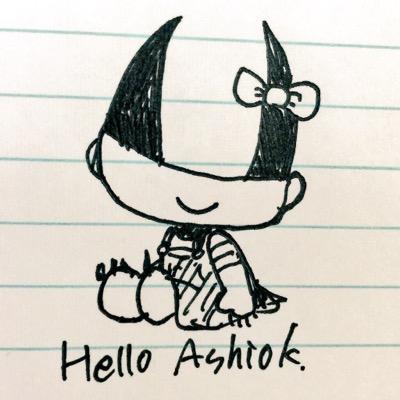 Hello Ashiok.